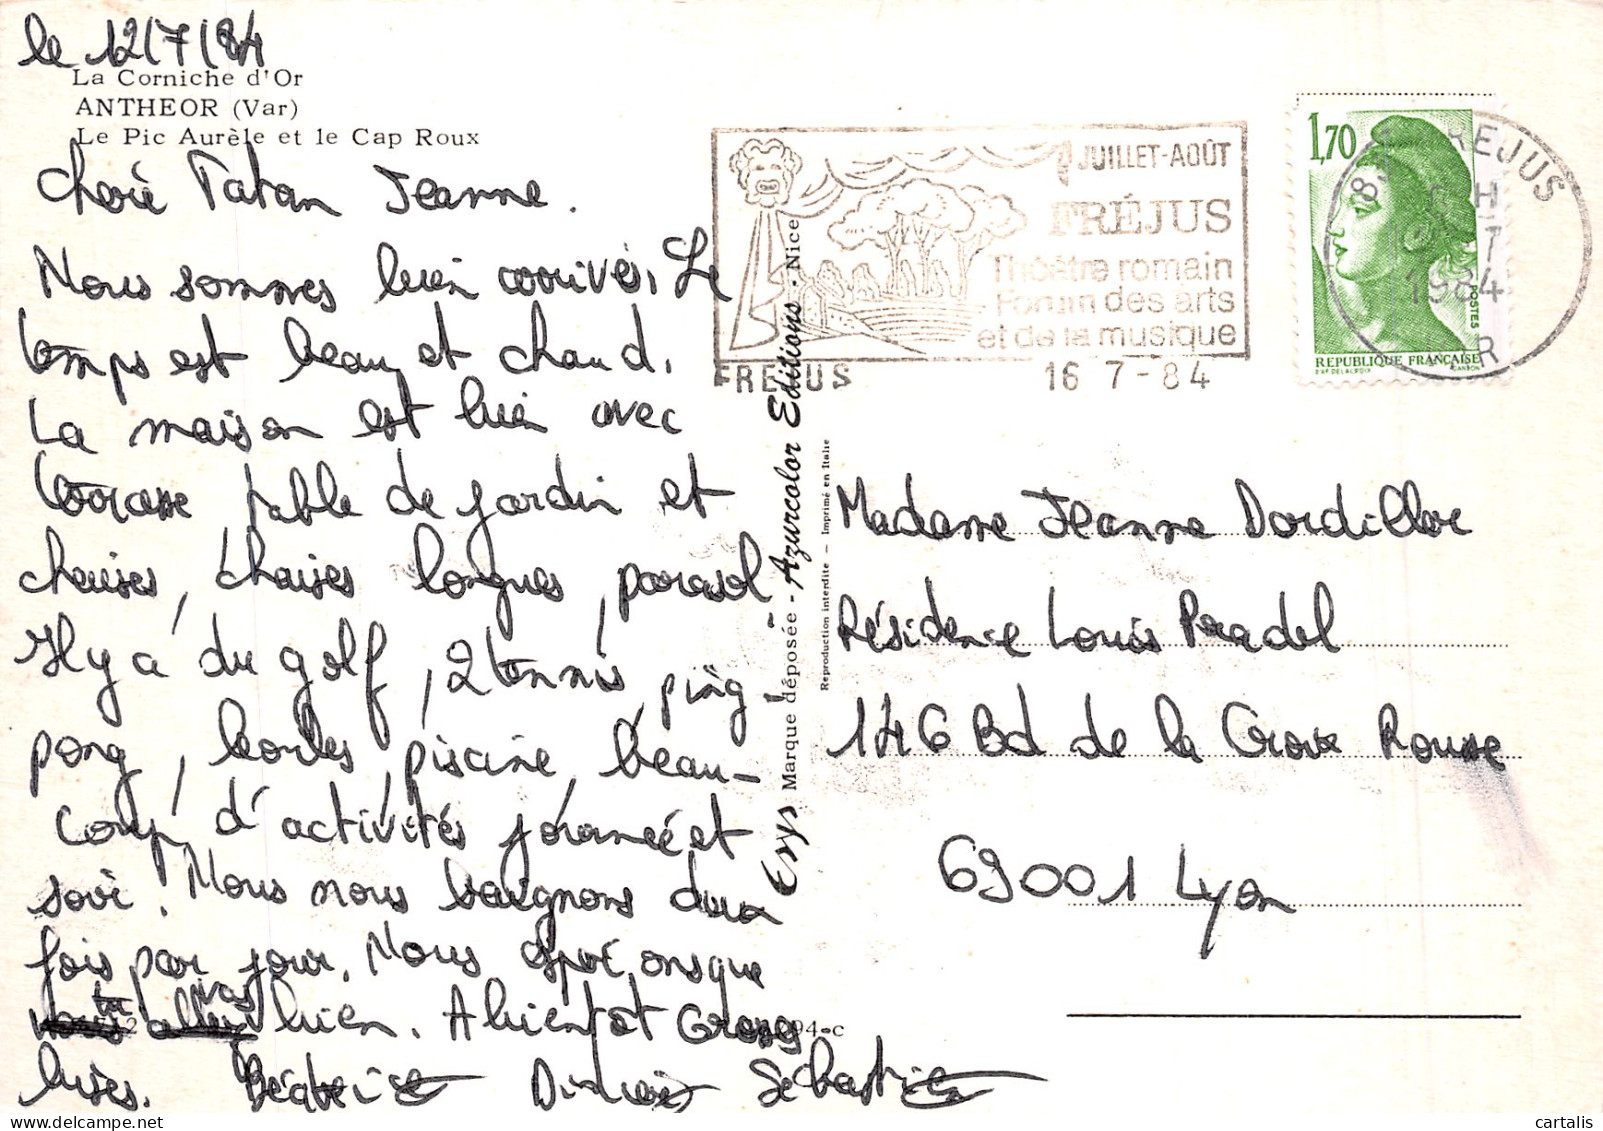 le 12/7/84
La Corniche d'Or
ANTHEOR (Var)
Le Pic Aurèle et le Cap Roux
Cherie Tatan Jeanne.
Nous sommes bien arrivés. Le
temps est beau et chaud.
La maison est bien avec
terrasse table de jardin et
chaises, chaises longues, parasol
Il y a du golf, 2 tennis, ping-
pong, boules, piscine, beau-
coup d'activités journée et
soir! Nous nous baignons deux
fois par jour. Nous espérons que
tu vas
bien. A bientot Grosses
bises. Béatrice Didier Sébastien
JUILLET-AOÛT
FRÉJUS
Théâtre romain
Forum des arts
et de la musique
FREJUS 16 7-84
1,70
POSTES
REPUBLIQUE FRANÇAISE
D'AP. DELACROIX GANDON
83 FREJUS
H
7
1984
VAR
Erys Marque déposée - Azurcolor Editions - Nice
Reproduction interdite — Imprimé en Italie
Madame Jeanne Dordillor
Résidence Louis Pradel
146 Bd de la Croix Rousse
69001 Lyon
94-c
cartalis